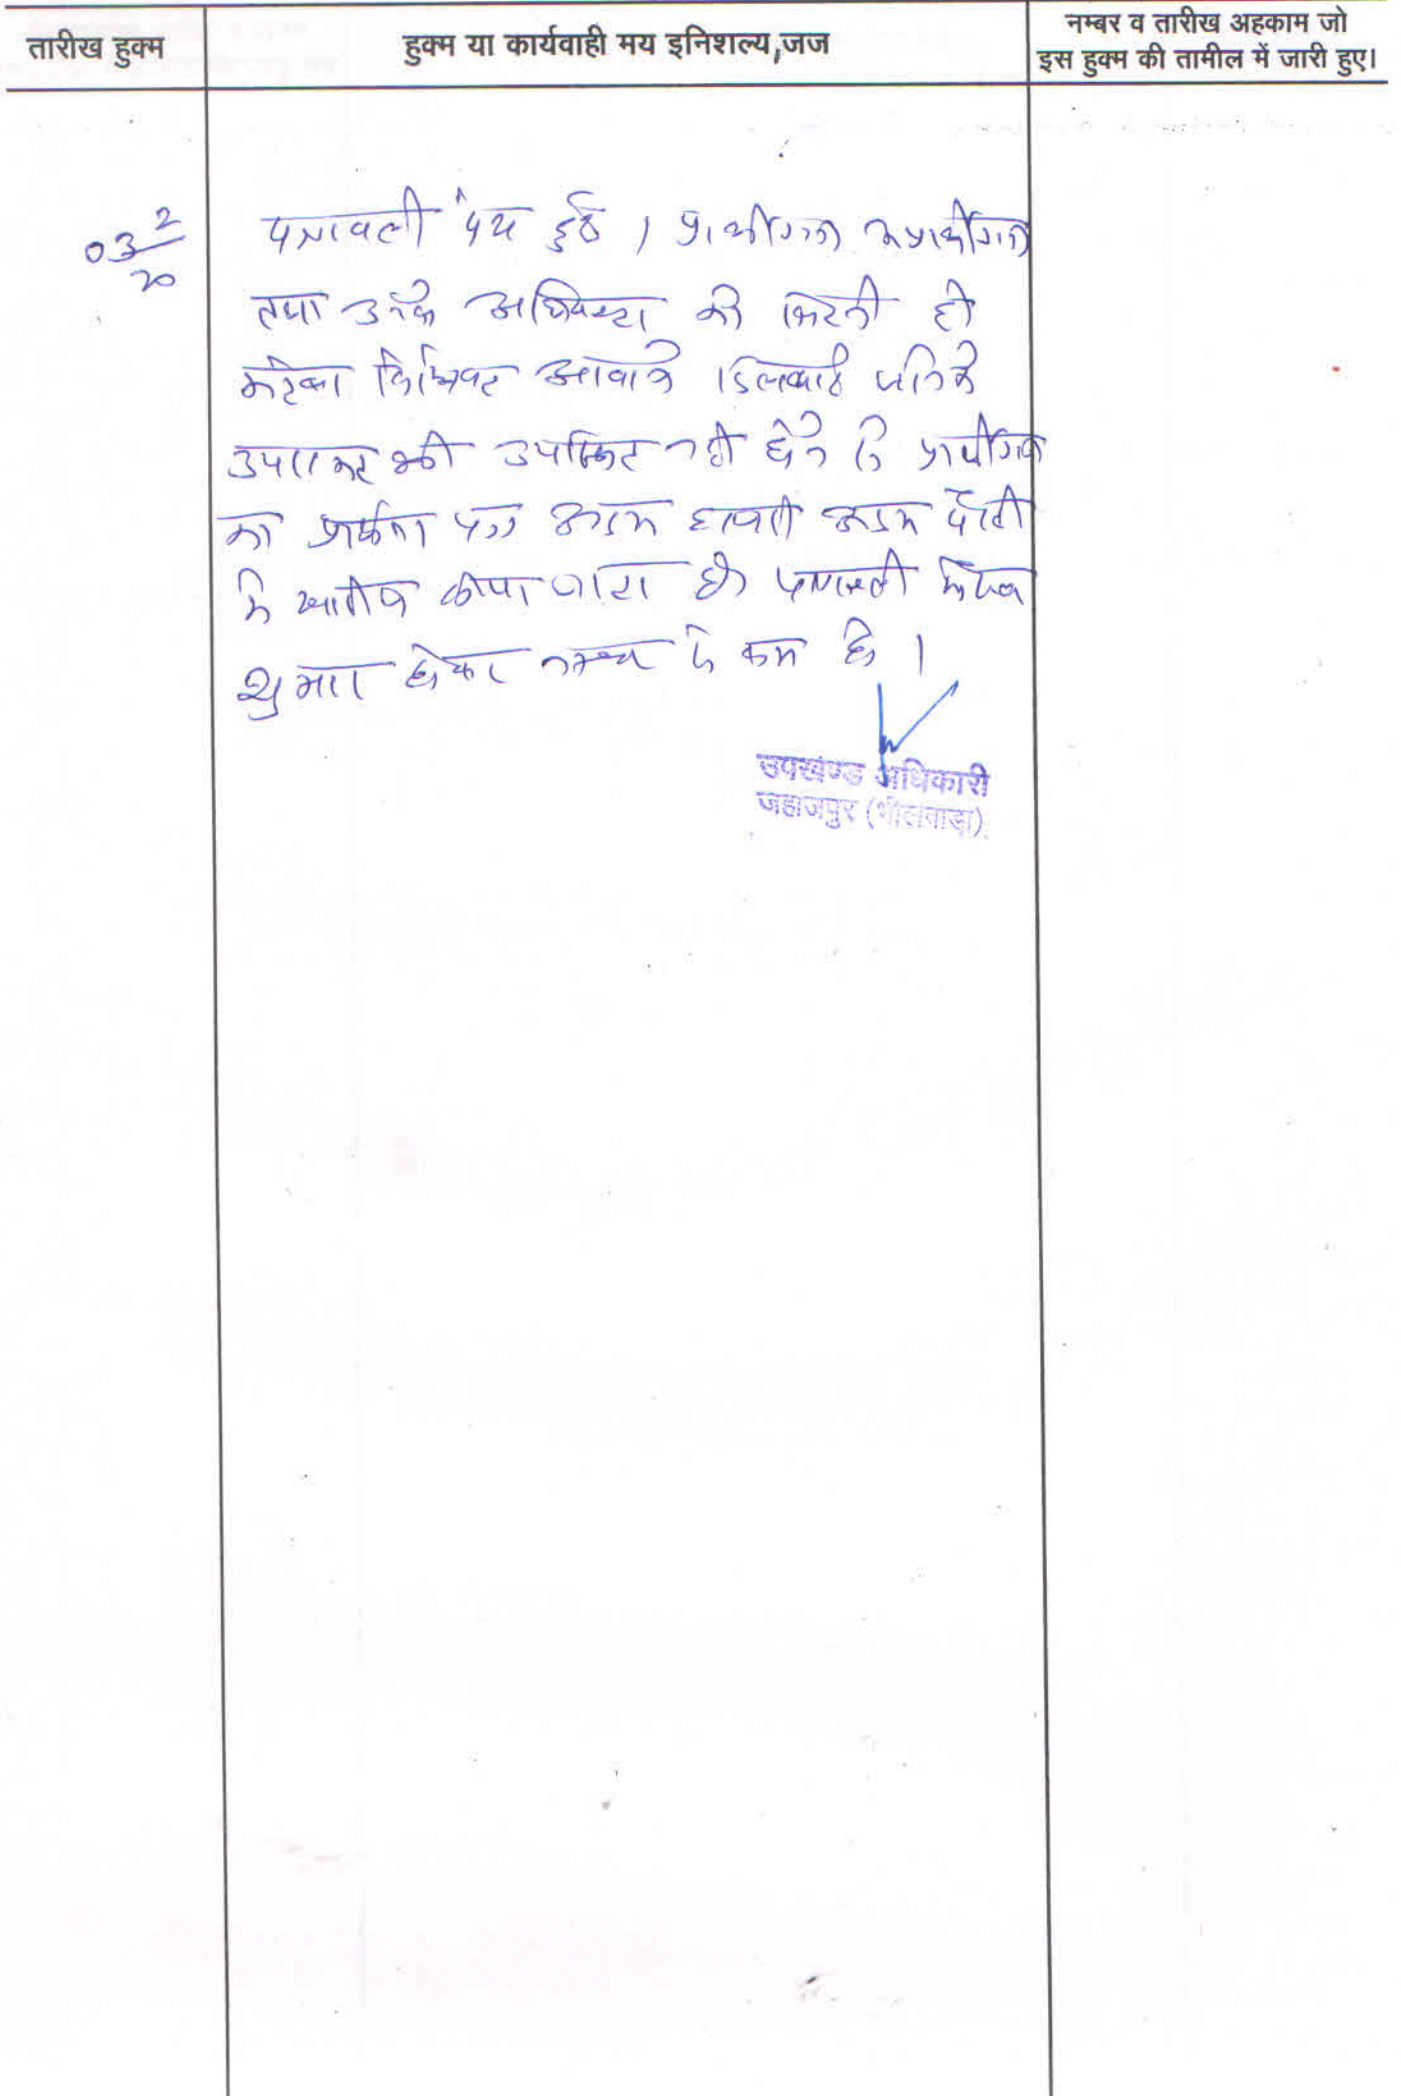 तारीख हुक्म
हुक्म या कार्यवाही मय इनिशल्य,जज
नम्बर व तारीख अहकाम जो
इस हुक्म की तामील में जारी हुए।
03 2/20
पत्रावली पेश हुई । प्रार्थीगण अप्रार्थीगण
तथा उनके अधिवक्ता को कितनी ही
मर्तबा आवाजे दिलवाई जाने के
उपरान्त भी उपस्थित नही होने से प्रार्थीगण
का प्रार्थना पत्र अदम हाजरी अदम पैरवी
मे खारीज कीया जाता है। पत्रावली फैसल
शुमार होकर नम्बर से कम हो ।
उपखण्ड अधिकारी
जहाजपुर (भीलवाड़ा)